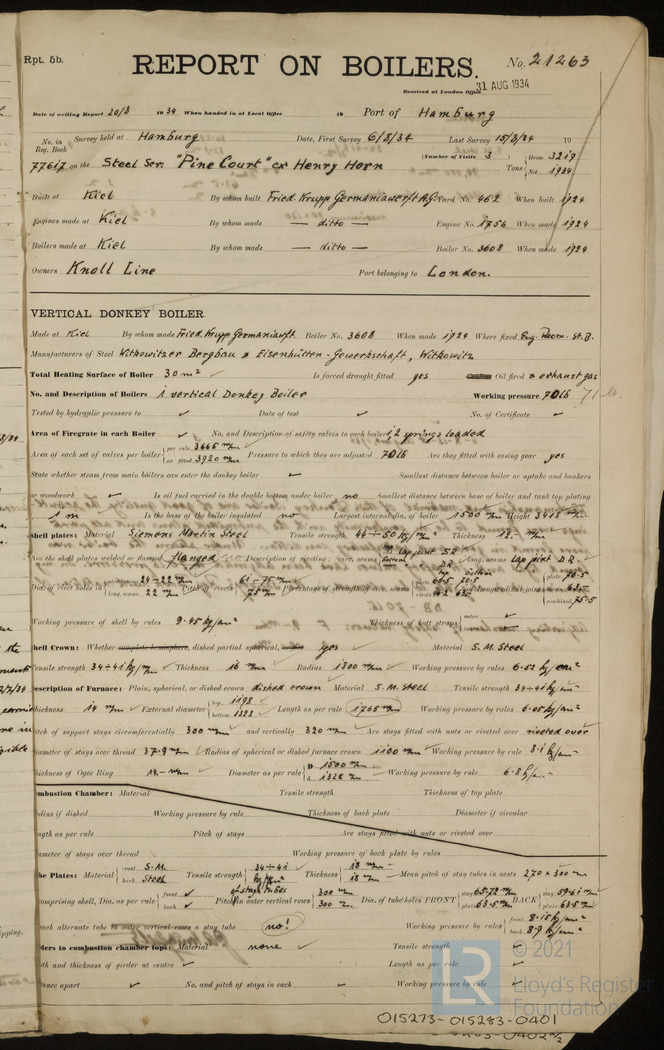 Rpt. 5b.
REPORT ON BOILERS.
No. 21263
Received at London Office 31 AUG 1934
Date of writing Report 20/8 1934 When handed in at Local Office 19 Port of Hamburg
No. in Reg. Book Survey held at Hamburg Date, First Survey 6/8/34 Last Survey 15/8/34 19
(Number of Visits 3)
77617 on the Steel Scr. "Pine Court" ex Henry Horn Tons Gross 3219 Net 1934
Built at Kiel By whom built Fried. Krupp Germaniawerft A.G. Yard No. 462 When built 1924
Engines made at Kiel By whom made — ditto — Engine No. 1756 When made 1924
Boilers made at Kiel By whom made — ditto — Boiler No. 3608 When made 1924
Owners Knoll Line Port belonging to London.
VERTICAL DONKEY BOILER.
Made at Kiel By whom made Fried. Krupp Germaniawft Boiler No. 3608 When made 1924 Where fixed Eng. Room. St. B.
Manufacturers of Steel Witkowitzer Bergbau & Eisenhütten-Gewerkschaft, Witkowitz
Total Heating Surface of Boiler 30 m² Is forced draught fitted yes Oil fired & exhaust gas
No. and Description of Boilers 1 vertical Donkey Boiler Working pressure 70 lb 71 lb.
Tested by hydraulic pressure to Date of test No. of Certificate
Area of Firegrate in each Boiler No. and Description of safety valves to each boiler 1, 2 springs loaded
Area of each set of valves per boiler per rule 3665 as fitted 3920 Pressure to which they are adjusted 70 lb Are they fitted with easing gear yes
State whether steam from main boilers can enter the donkey boiler Smallest distance between boiler or uptake and bunkers
or woodwork Is oil fuel carried in the double bottom under boiler no Smallest distance between base of boiler and tank top plating
1 m Is the base of the boiler insulated no Largest internal dia. of boiler 1500 Height 3418
Shell plates: Material Siemens Martin Steel Tensile strength 44÷50 kg/mm² Thickness 12
Are the shell plates welded or flanged flanged Description of riveting: circ. seams lap joint S.R. D R long. seams lap joint D R
Dia. of rivet holes in 24–22 long. seams 22 Pitch of rivets 61–75 75 Percentage of strength of circ. seams Longitudinal joint
Working pressure of shell by rules 9.45 kg/cm² Thickness of butt straps
Shell Crown: Whether complete hemisphere, dished partial spherical, yes Material S. M. Steel
Tensile strength 34÷41 kg/mm² Thickness 16 mm Radius 1800 mm Working pressure by rules 6.51 kg/cm²
Description of Furnace: Plain, spherical, or dished crown dished crown Material S. M. Steel Tensile strength 34÷41 kg/mm²
Thickness 14 External diameter top 1198 bottom 1322 Length as per rule 1765 Working pressure by rules 6.05 kg/cm²
Pitch of support stays circumferentially 300 and vertically 320 Are stays fitted with nuts or riveted over riveted over
Diameter of stays over thread 37.9 Radius of spherical or dished furnace crown 1100 Working pressure by rule 8.1 kg/cm²
Thickness of Ogee Ring 14 Diameter as per rule D 1500 d 1325 Working pressure by rule 6.8 kg/cm²
Combustion Chamber: Material Tensile strength Thickness of top plate
Radius if dished Working pressure by rule Thickness of back plate Diameter if circular
Length as per rule Pitch of stays Are stays fitted with nuts or riveted over
Diameter of stays over thread Working pressure of back plate by rules
Tube Plates: Material front S.M. back Steel Tensile strength 34÷41 kg/mm² Thickness 18 18 Mean pitch of stay tubes in nests 270 × 300
If comprising shell, Dia. as per rule front back Pitch in outer vertical rows 300 300 Dia. of tube holes FRONT stay 65-72 plain 63.5 BACK stay 59.61 plain 63.5
Is each alternate tube in outer vertical rows a stay tube no! Working pressure by rules front 8.15 kg/cm² back 8.9 kg/cm²
Girders to combustion chamber tops: Material none Tensile strength
Depth and thickness of girder at centre Length as per rule
Distance apart No. and pitch of stays in each Working pressure by rule
© 2021
Lloyd's Register
Foundation
LR
015273-015283-0401